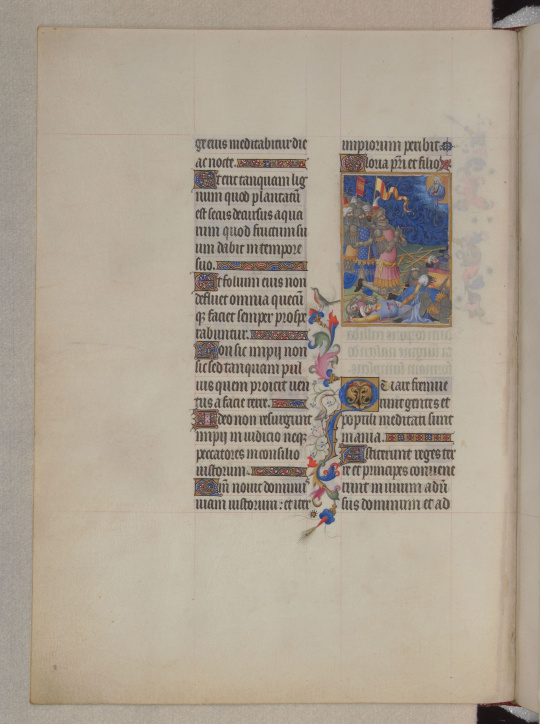 ge eius meditabitur die
ac nocte.
Et erit tanquam lig
num quod plantatū
est secus decursus aqua
rum quod fructum su
um dabit in tempore
suo.
Et folium eius non
defluet omnia quecū
qȝ faciet semper prospe
rabuntur.
Non sic impij non
sic sed tanquam pul
uis quem proicit uen
tus a facie terre.
Ideo non resurgunt
impij in iudicio neqȝ
peccatores in consilio
iustorum.
Qm̄ nouit dominus
uiam iustorum: et iter
impiorum peribit.
Gloria p̄ri et filio
Quare fremue
runt gentes et
populi meditati sunt
inania.
Astiterunt reges ter
re et principes conuene
runt in unum adū
sus dominum et ad